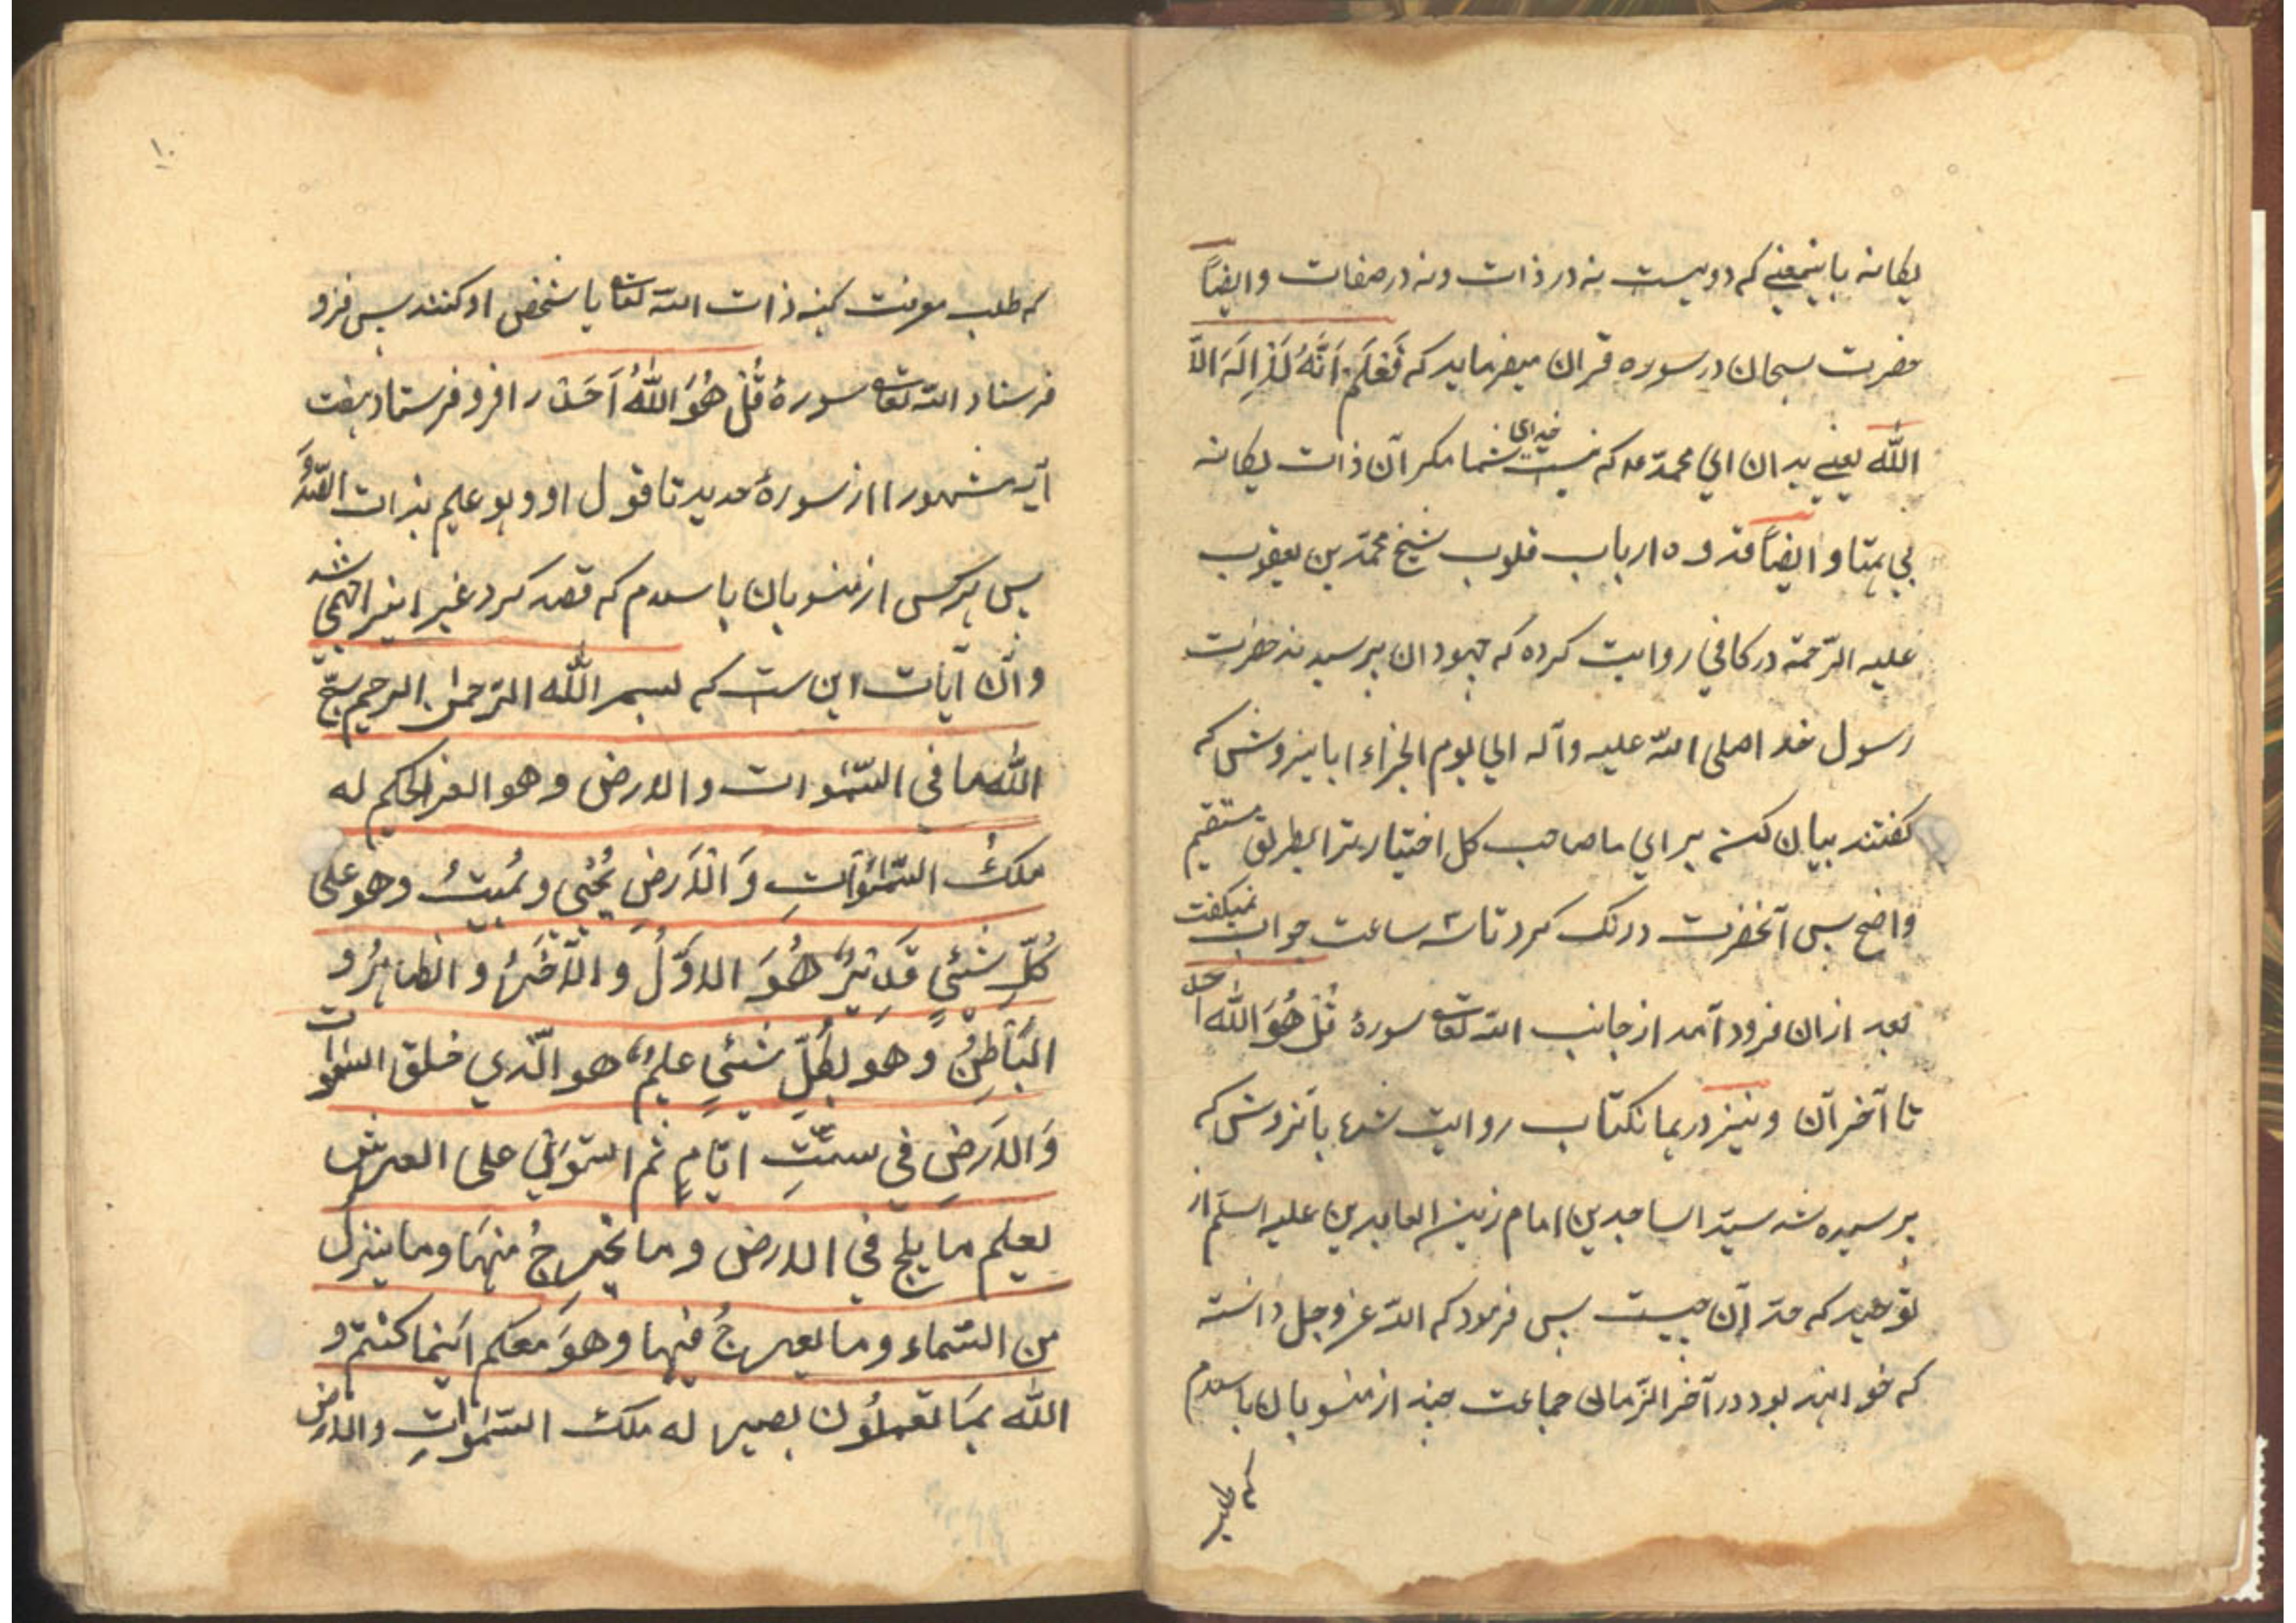 یکانه باینمعنے که دو نیست نه در ذات و نه در صفات و ایضاً
حضرت سبحان در سوره قران میفرماید که فَعْلَم اَنَّهُ لَا اِلَهَ الاَّ
اللّٰه یعنے بدان ای محمّد که نیست خدای شما مکر آن ذات یکانه
بی همتا و ایضاً قدوه ارباب قلوب شیخ محمّد بن یعقوب
علیه الرّحمة در کافي روایت کرده که جهودان پرسیدند حضرت
رسول خدا صلی اللّه علیه وآله الي یوم الجزاء اباینروش که
کفتند بیان کن برای ما صاحب کل اختیار تیرا بطریق مستقیم
واضح پس آنحضرت درنک کرد تا سه ساعت جواب نمیکفت
بعد ازان فرود آمد از جانب اللّه تعالی سورهٔ قُلْ هُوَ اللّٰه احد
تا آخر آن و نیز در همانکتاب روایت شده بآنروش که
پرسیده شد سیّد الساجدین امام زین العابدین علیه السلم از
توحید که حدّ آن چیست پس فرمود که اللّه عز وجل دانسته
که خواهند بود در آخر الزّمان جماعت چند از منسوبان باسلام
که طلب
۱۰
که طلب معرفت کنه ذات اللّه تعالی یا شخص او کنند پس فرو
فرستاد اللّه تعالی سورهٔ قُلْ هُوَ اللّٰهُ اَحَدْ را فرو فرستاد هفت
آیه مشهور ا از سورهٔ حدید تا قول او وهو علیم بذات الصّدُ
پس هرکس از منسوبان باسلام که قصد کرد غیر اینرا جهنمی شد
و آن آیات این ست که بسم اللّٰه الرّحمٰن الرحیم سبّح
اللّٰه ما فی السّمٰوات والارض وهو العزالحکیم له
ملکُ السّمٰوٰاتِ وَالْاَرضِ یُحْیی ویُمیتُ وهو علی
کُلِّ شَئیٍ قَدیْرٌ هُوَ الاوَّلُ وَالآخَرُ والظاهِرُ و
البَاطِنُ وَهو بکُلِّ شَئیٍ علیمٌ هو الّذي خلق السّموات
وَالاَرَضِ في ستّتِ ایّامٍ ثم استَوَیٰ علی العرش
یعلم مَا یلج في الارض وما یخرجُ مِنهَا وما ینزل
من السّماء وما یعرجُ فیها وهوَ معکم اَینما کنتم و
اللّٰه بمَا تعملُون بصیر له ملک السّمٰواتِ والارض